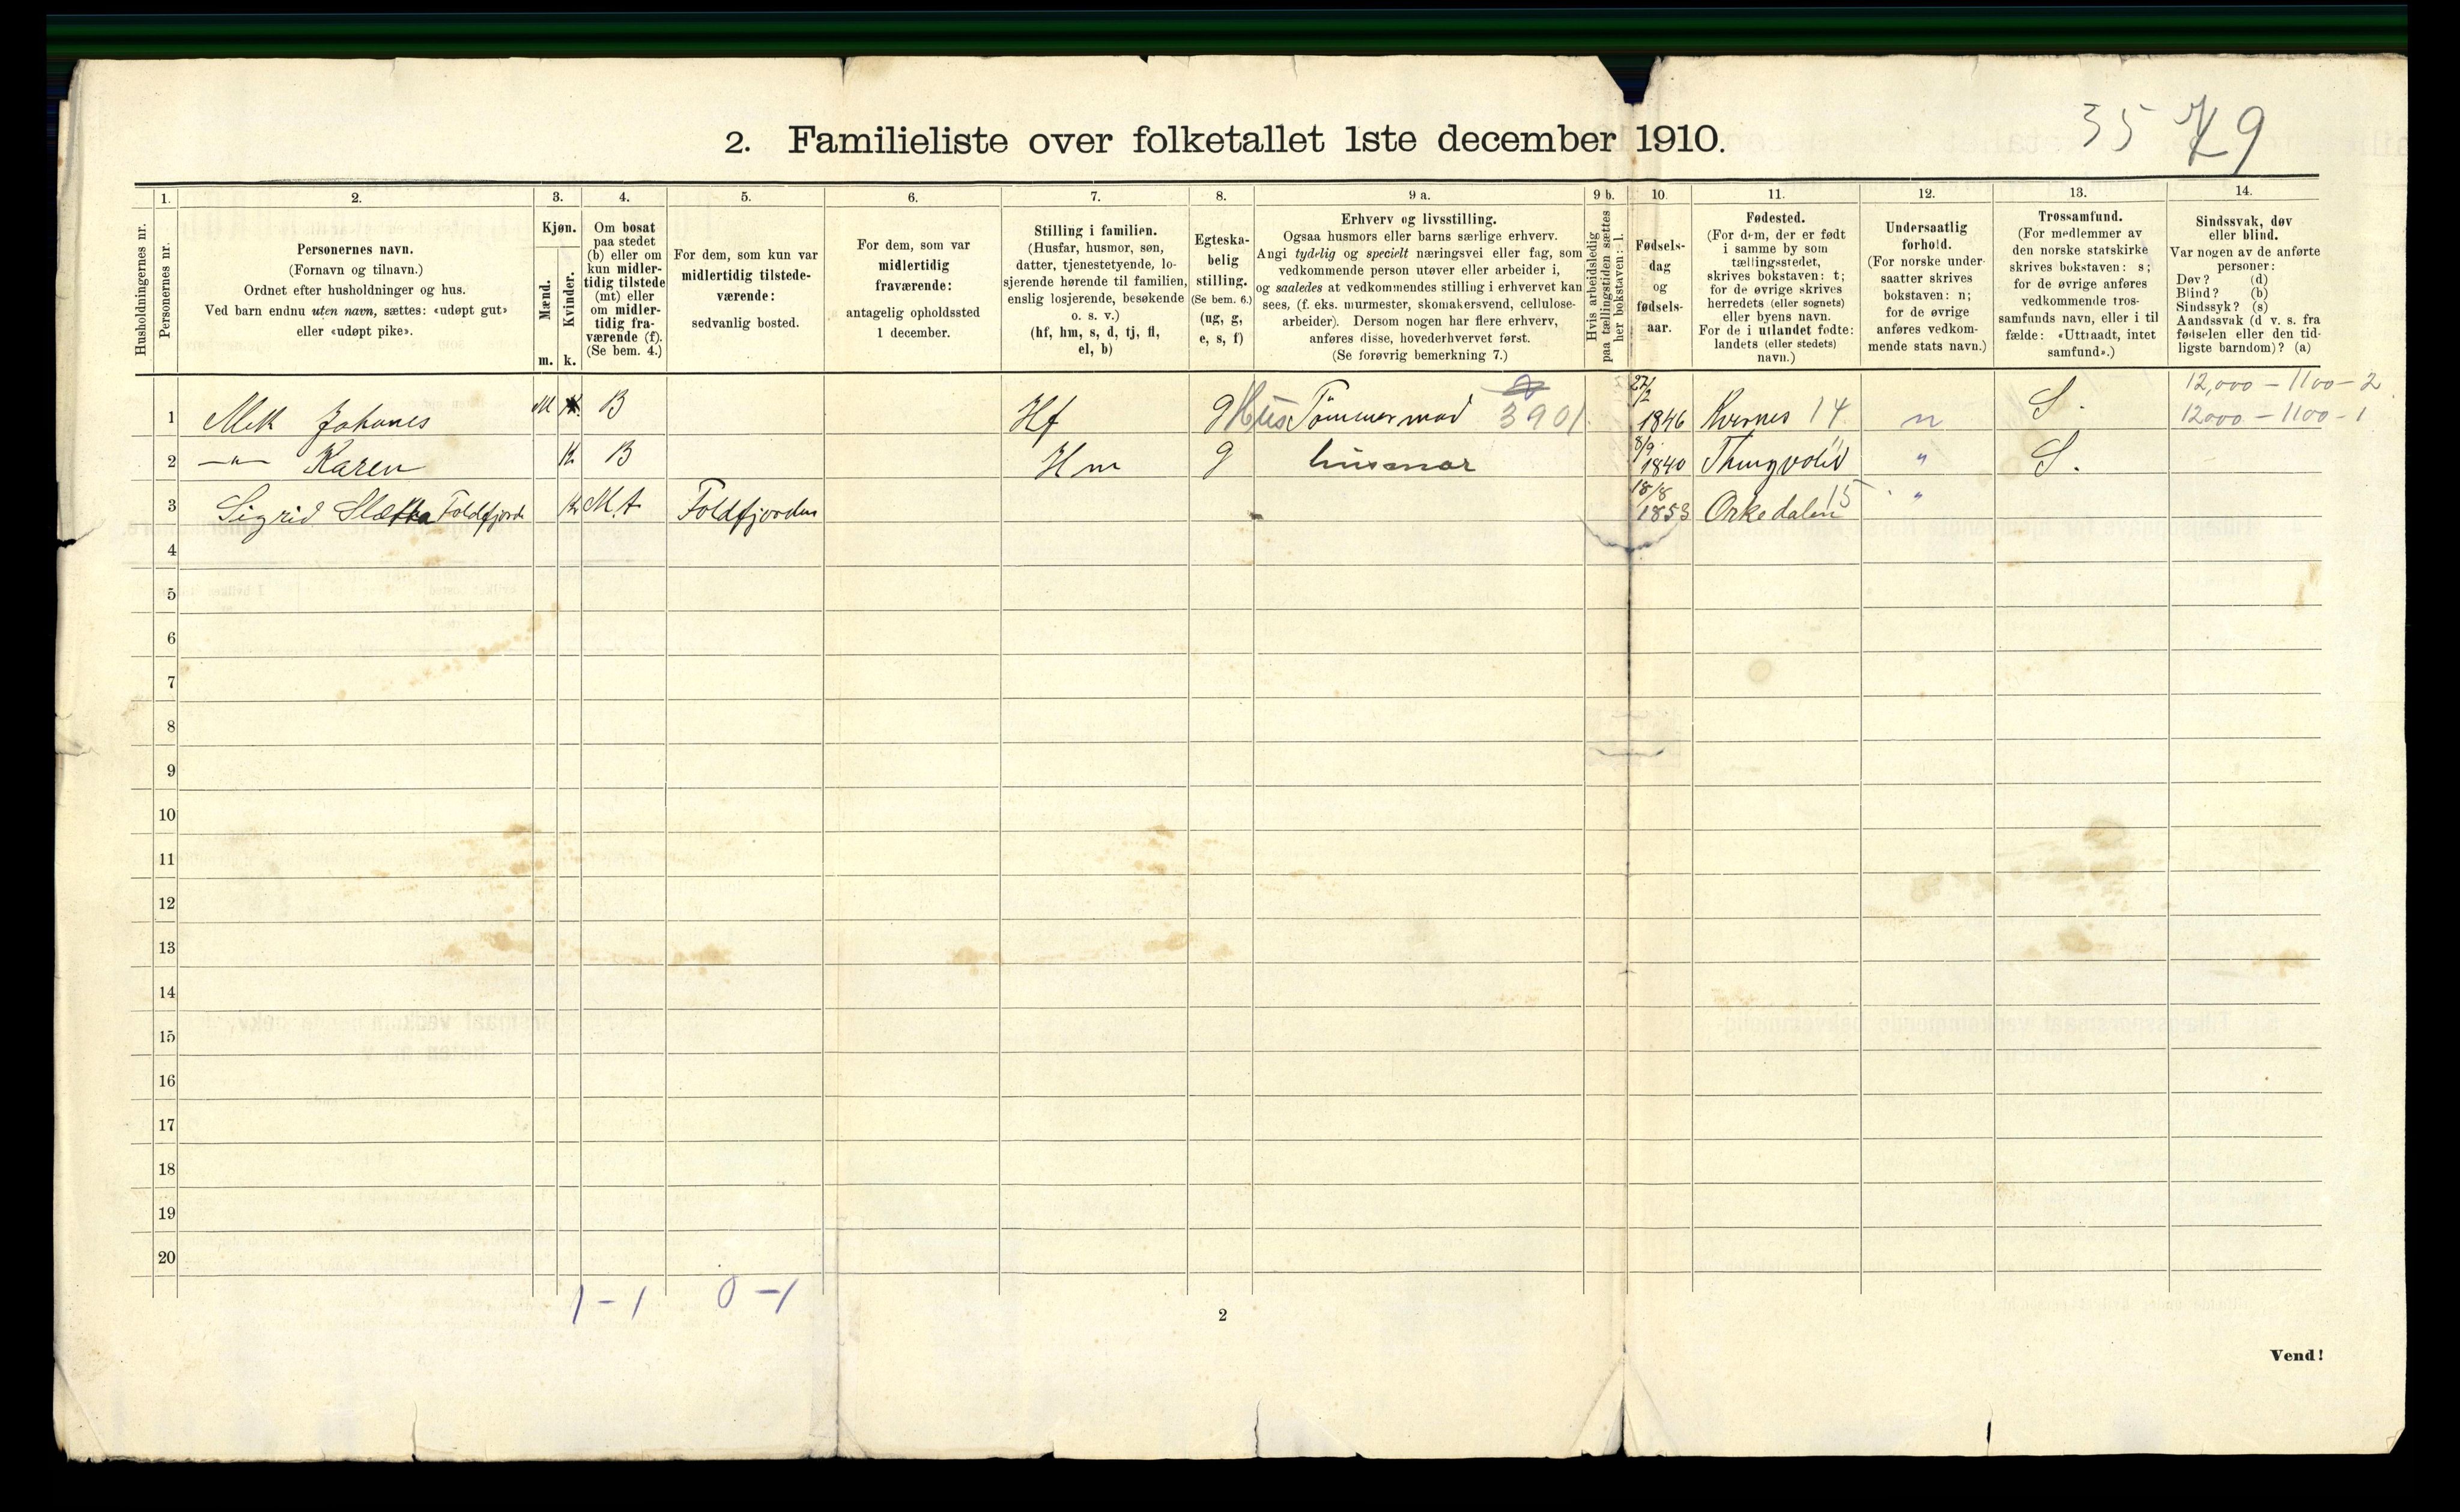 35 79
2. Familieliste over folketallet 1ste december 1910.
Husholdningernes nr.
1.
Personernes nr.
2.
Personernes navn.
(Fornavn og tilnavn.)
Ordnet efter husholdninger og hus.
Ved barn endnu uten navn, sættes: «udøpt gut»
eller «udøpt pike».
3.
Kjøn.
Mænd.
Kvinder.
m. k.
4.
Om bosat
paa stedet
(b) eller om
kun midler-
tidig tilstede
(mt) eller
om midler-
tidig fra-
værende (f).
(Se bem. 4.)
5.
For dem, som kun var
midlertidig tilstede-
værende:
sedvanlig bosted.
6.
For dem, som var
midlertidig
fraværende:
antagelig opholdssted
1 december.
7.
Stilling i familien.
(Husfar, husmor, søn,
datter, tjenestetyende, lo-
sjerende hørende til familien,
enslig losjerende, besøkende
o. s. v.)
(hf, hm, s, d, tj, fl,
el, b)
8.
Egteska-
belig
stilling.
(Se bem. 6.)
(ug, g,
e, s, f)
9 a.
Erhverv og livsstilling.
Ogsaa husmors eller barns særlige erhverv.
Angi tydelig og specielt næringsvei eller fag, som
vedkommende person utøver eller arbeider i,
og saaledes at vedkommendes stilling i erhvervet kan
sees, (f. eks. murmester, skomakersvend, cellulose-
arbeider). Dersom nogen har flere erhverv,
anføres disse, hovederhvervet først.
(Se forøvrig bemerkning 7.)
9 b.
Hvis arbeidsledig
paa tællingstiden sættes
her bokstaven: l.
10.
Fødsels-
dag
og
fødsels-
aar.
11.
Fødested.
(For dem, der er født
i samme by som
tællingsstedet,
skrives bokstaven: t;
for de øvrige skrives
herredets (eller sognets)
eller byens navn.
For de i utlandet fødte:
landets (eller stedets)
navn.)
12.
Undersaatlig
forhold.
(For norske under-
saatter skrives
bokstaven: n;
for de øvrige
anføres vedkom-
mende stats navn.)
13.
Trossamfund.
(For medlemmer av
den norske statskirke
skrives bokstaven: s;
for de øvrige anføres
vedkommende tros-
samfunds navn, eller i til-
fælde: «Uttraadt, intet
samfund».)
14.
Sindssvak, døv
eller blind.
Var nogen av de anførte
personer:
Døv? (d)
Blind? (b)
Sindssyk? (s)
Aandssvak (d. v. s. fra
fødselen eller den tid-
ligste barndom)? (a)
12,000 - 1100 - 2
1 Mek Johanes M B Hf g Hus Tømmermad 3901 27/2 1846 Kvernes 14 n S. 12000 - 1100 - 1
2 —"— Karen K B Hm g husmor 8/9 1840 Thingvold " S.
3 Sigrid Foldfjord K M.t Foldfjorden 18/8 1853 Orkedalen 15 "
4
5
6
7
8
9
10
11
12
13
14
15
16
17
18
19
20
1 - 1 0 - 1
2
Vend!